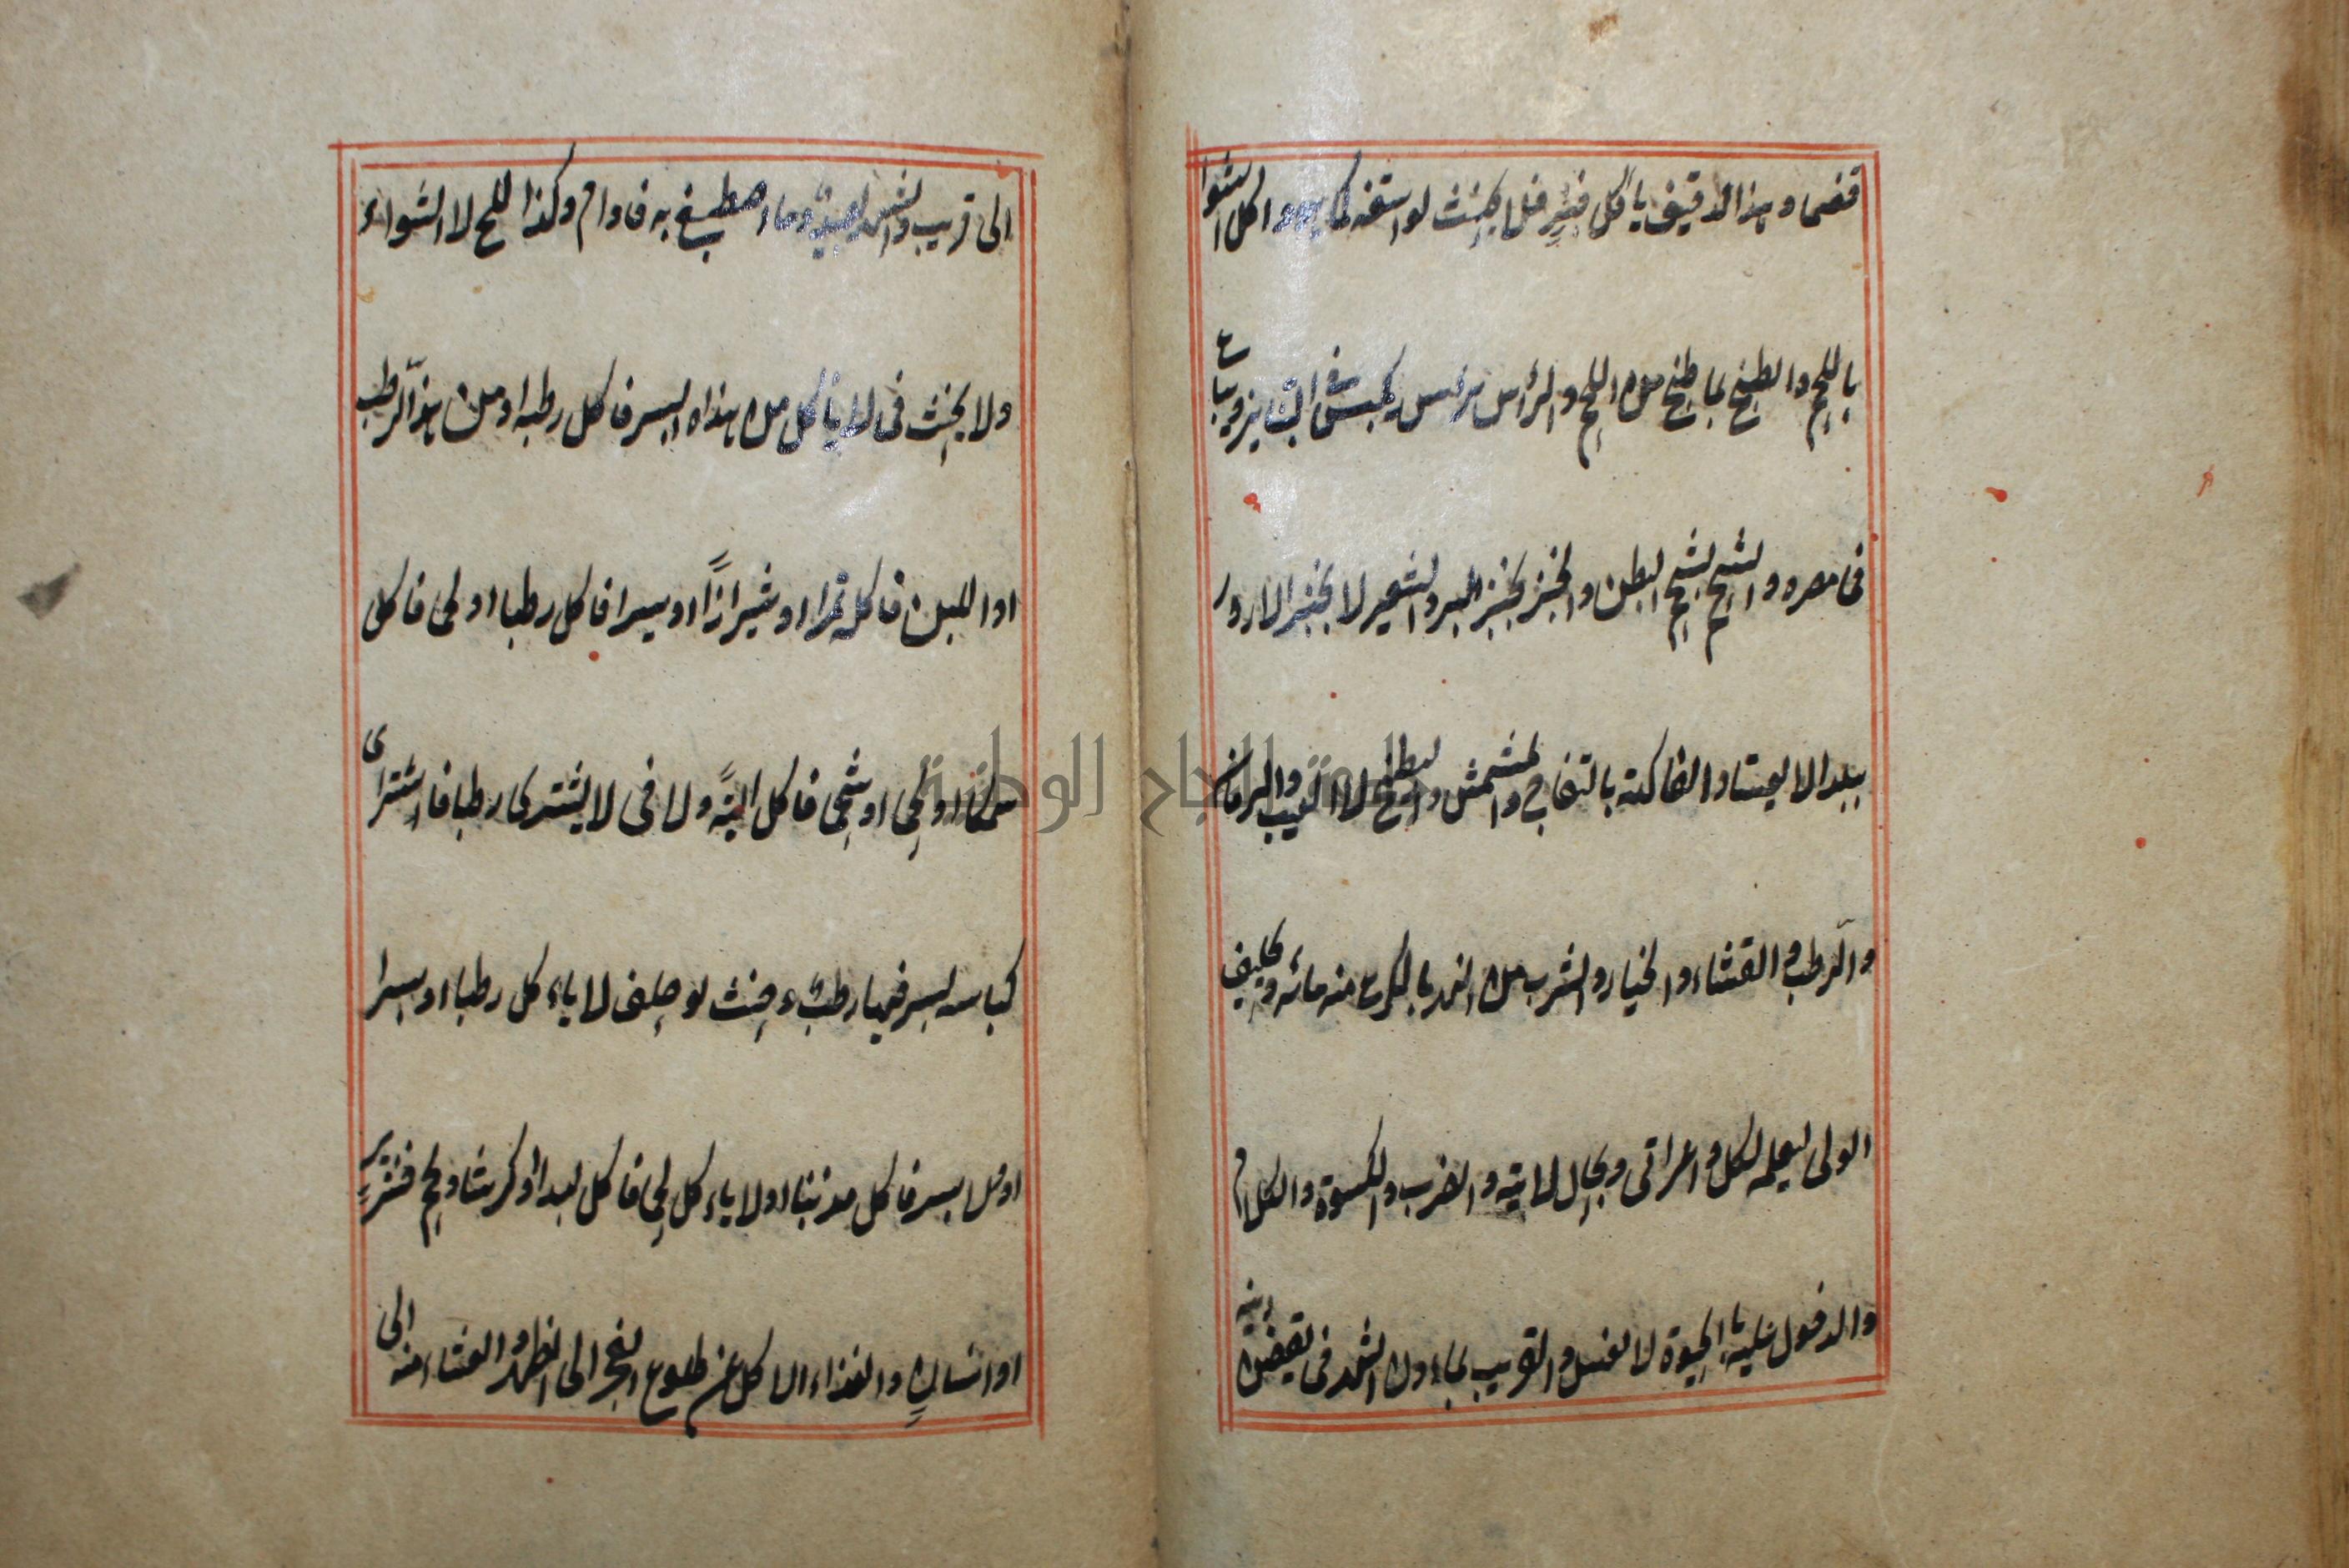 قضما وهذا الدقيق يأكل خبزه فلم يحنث لو استفه كما هو واكل الشوا
باللحم والطبخ بما طبخ من اللحم والرأس براس يكبس في التنانير ويباع
في مصره والشحم بشحم البطن والخبز بخبز البر والشعير لا بخبز الارز
ببلد لا يعتاد والفاكهة بالتفاح والمشمش والبطيخ لا العنب والرمان
والرطب والقثاء والخيار والشرب من النهر بالكرع منه مائه وتحليف
الوالي ليعلمه بكل داعر اتى وبحال ولايته والضرب والكسوة والكلام
والدخول عليه بالحيوة لا الغسل والقريب بما دون الشهر في ليقضين دينه
الى قريب والشهر بعيد وما اصطبغ به فادام وكذا الملح لا الشواء
ولا يحنث في لا يأكل من هذا البسر فاكل رطبه او من هذا الرطب
او اللبن فاكله تمرا او شيرازا او بسرا فاكل رطبا او لحما فاكل
سمكا او لحما او شحما فاكل الية ولا في لا يشتري رطبا فاشترى
كباسة بسر فيها رطب وحنث لو حلف لا يأكل رطبا او بسرا
او ولا بسرا فاكل مذنبا او لا يأكل لحما فاكل كبدا او كرشا او لحم خنزير
او انسان والغذاء الاكل من طلوع الفجر الى الظهر والعشاء منه الى